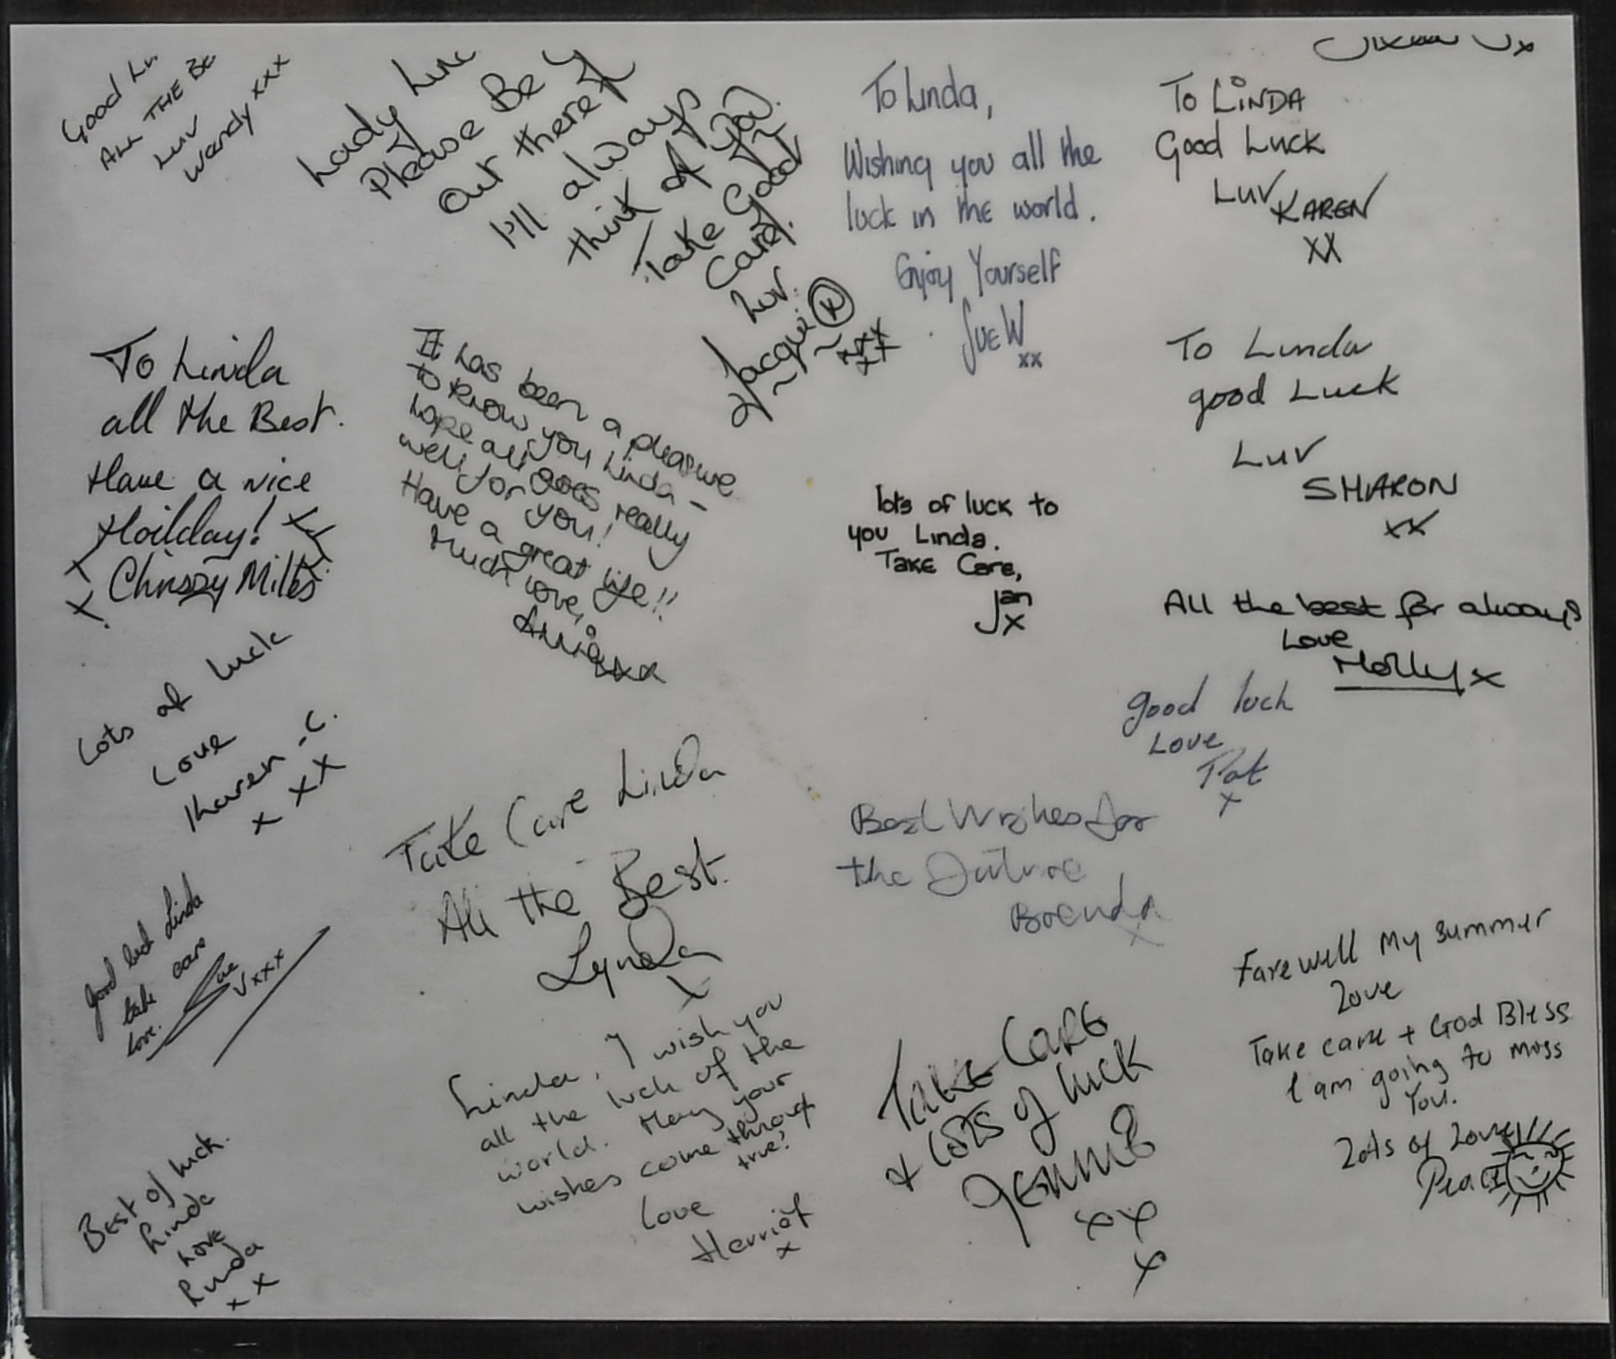 Good Lu
ALL THE BE
LUV
Wendy xxx
Lady Linc
Please Be y
Out there!
I'll always
think of you.
Take Good
Care!
Luv.
Jacqui R
xxx
xx
To Linda,
Wishing you all the
luck in the world.
Enjoy Yourself
Sue W
xx
To LINDA
Good Luck
Luv KAREN
XX
To Linda
all the Best.
Have a nice
Hoilday!
Chrissy Miles
It has been a pleasure
to know you Linda -
hope all goes really
well for you!
Have a great life!!
Much love,
To Linda
good Luck
Luv
SHARON
xx
lots of luck to
you Linda.
Take Care,
Jan
x
All the best for always
Love
Molly x
Lots of luck
Love
Karen - C.
x xx
good luck
Love
Pat
x
Take Care Linda
All the Best.
Lynda
x
Best Wishes for
the Future
Brenda
x
good luck Linda
take care
love. Sue
xxx
Farewell My summer
Love
Take care + God Bless
I am going to miss
You.
Lots of Love
Linda, I wish you
all the luck of the
world. May your
wishes come through
true?
Love
Herriot
x
Take Care
+ lots of luck
xx
x
Best of luck.
Linda
Love
Linda
xx